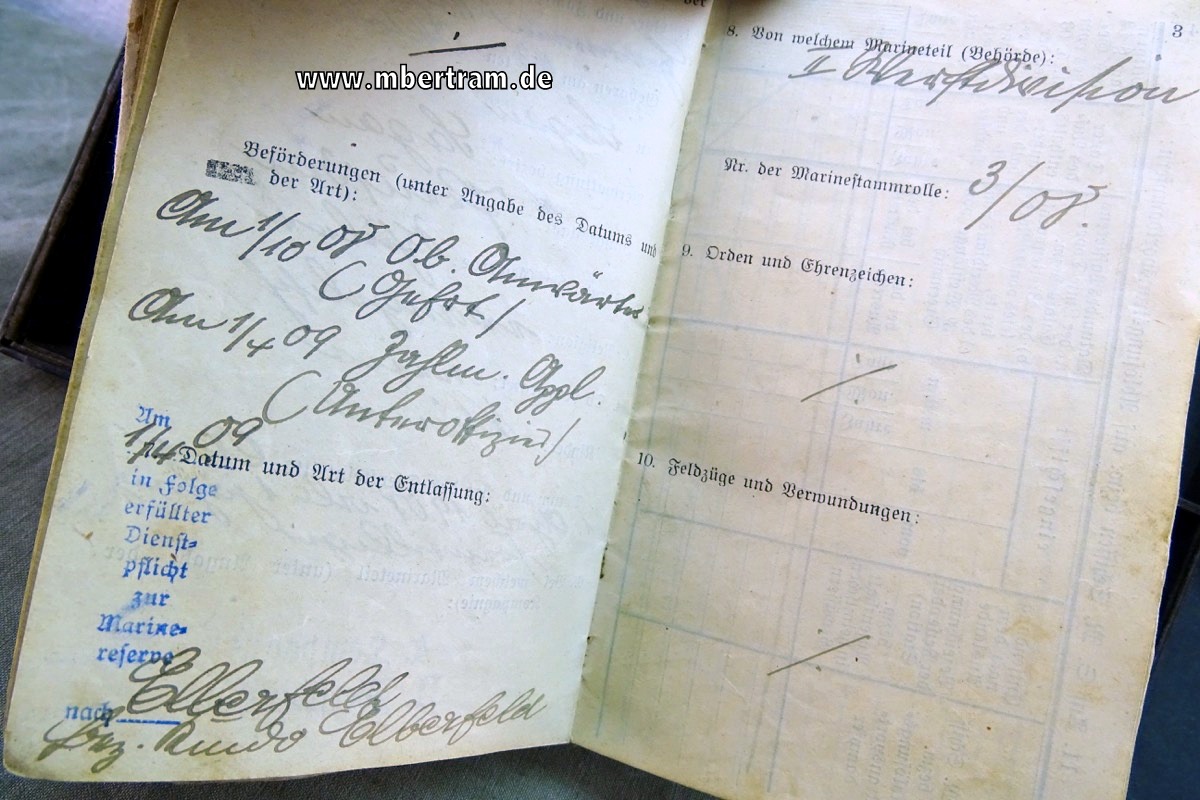 der
www.mbertram.de
Beförderungen (unter Angabe des Datums und
der Art):
Am 1/10 08 Ob. Anwärter
(Gefrt/
Am 1/4 09 Zahlm. Appl.
(Unteroffizier/
Am
1/4 09
Datum und Art der Entlassung:
in Folge
erfüllter
Dienst=
pflicht
zur
Marine=
reserve
nach Elberfeld
Bez. Kmdo Elberfeld
3
8. Von welchem Marineteil (Behörde):
II Werftdivision
Nr. der Marinestammrolle: 3/08.
9. Orden und Ehrenzeichen:
10. Feldzüge und Verwundungen: